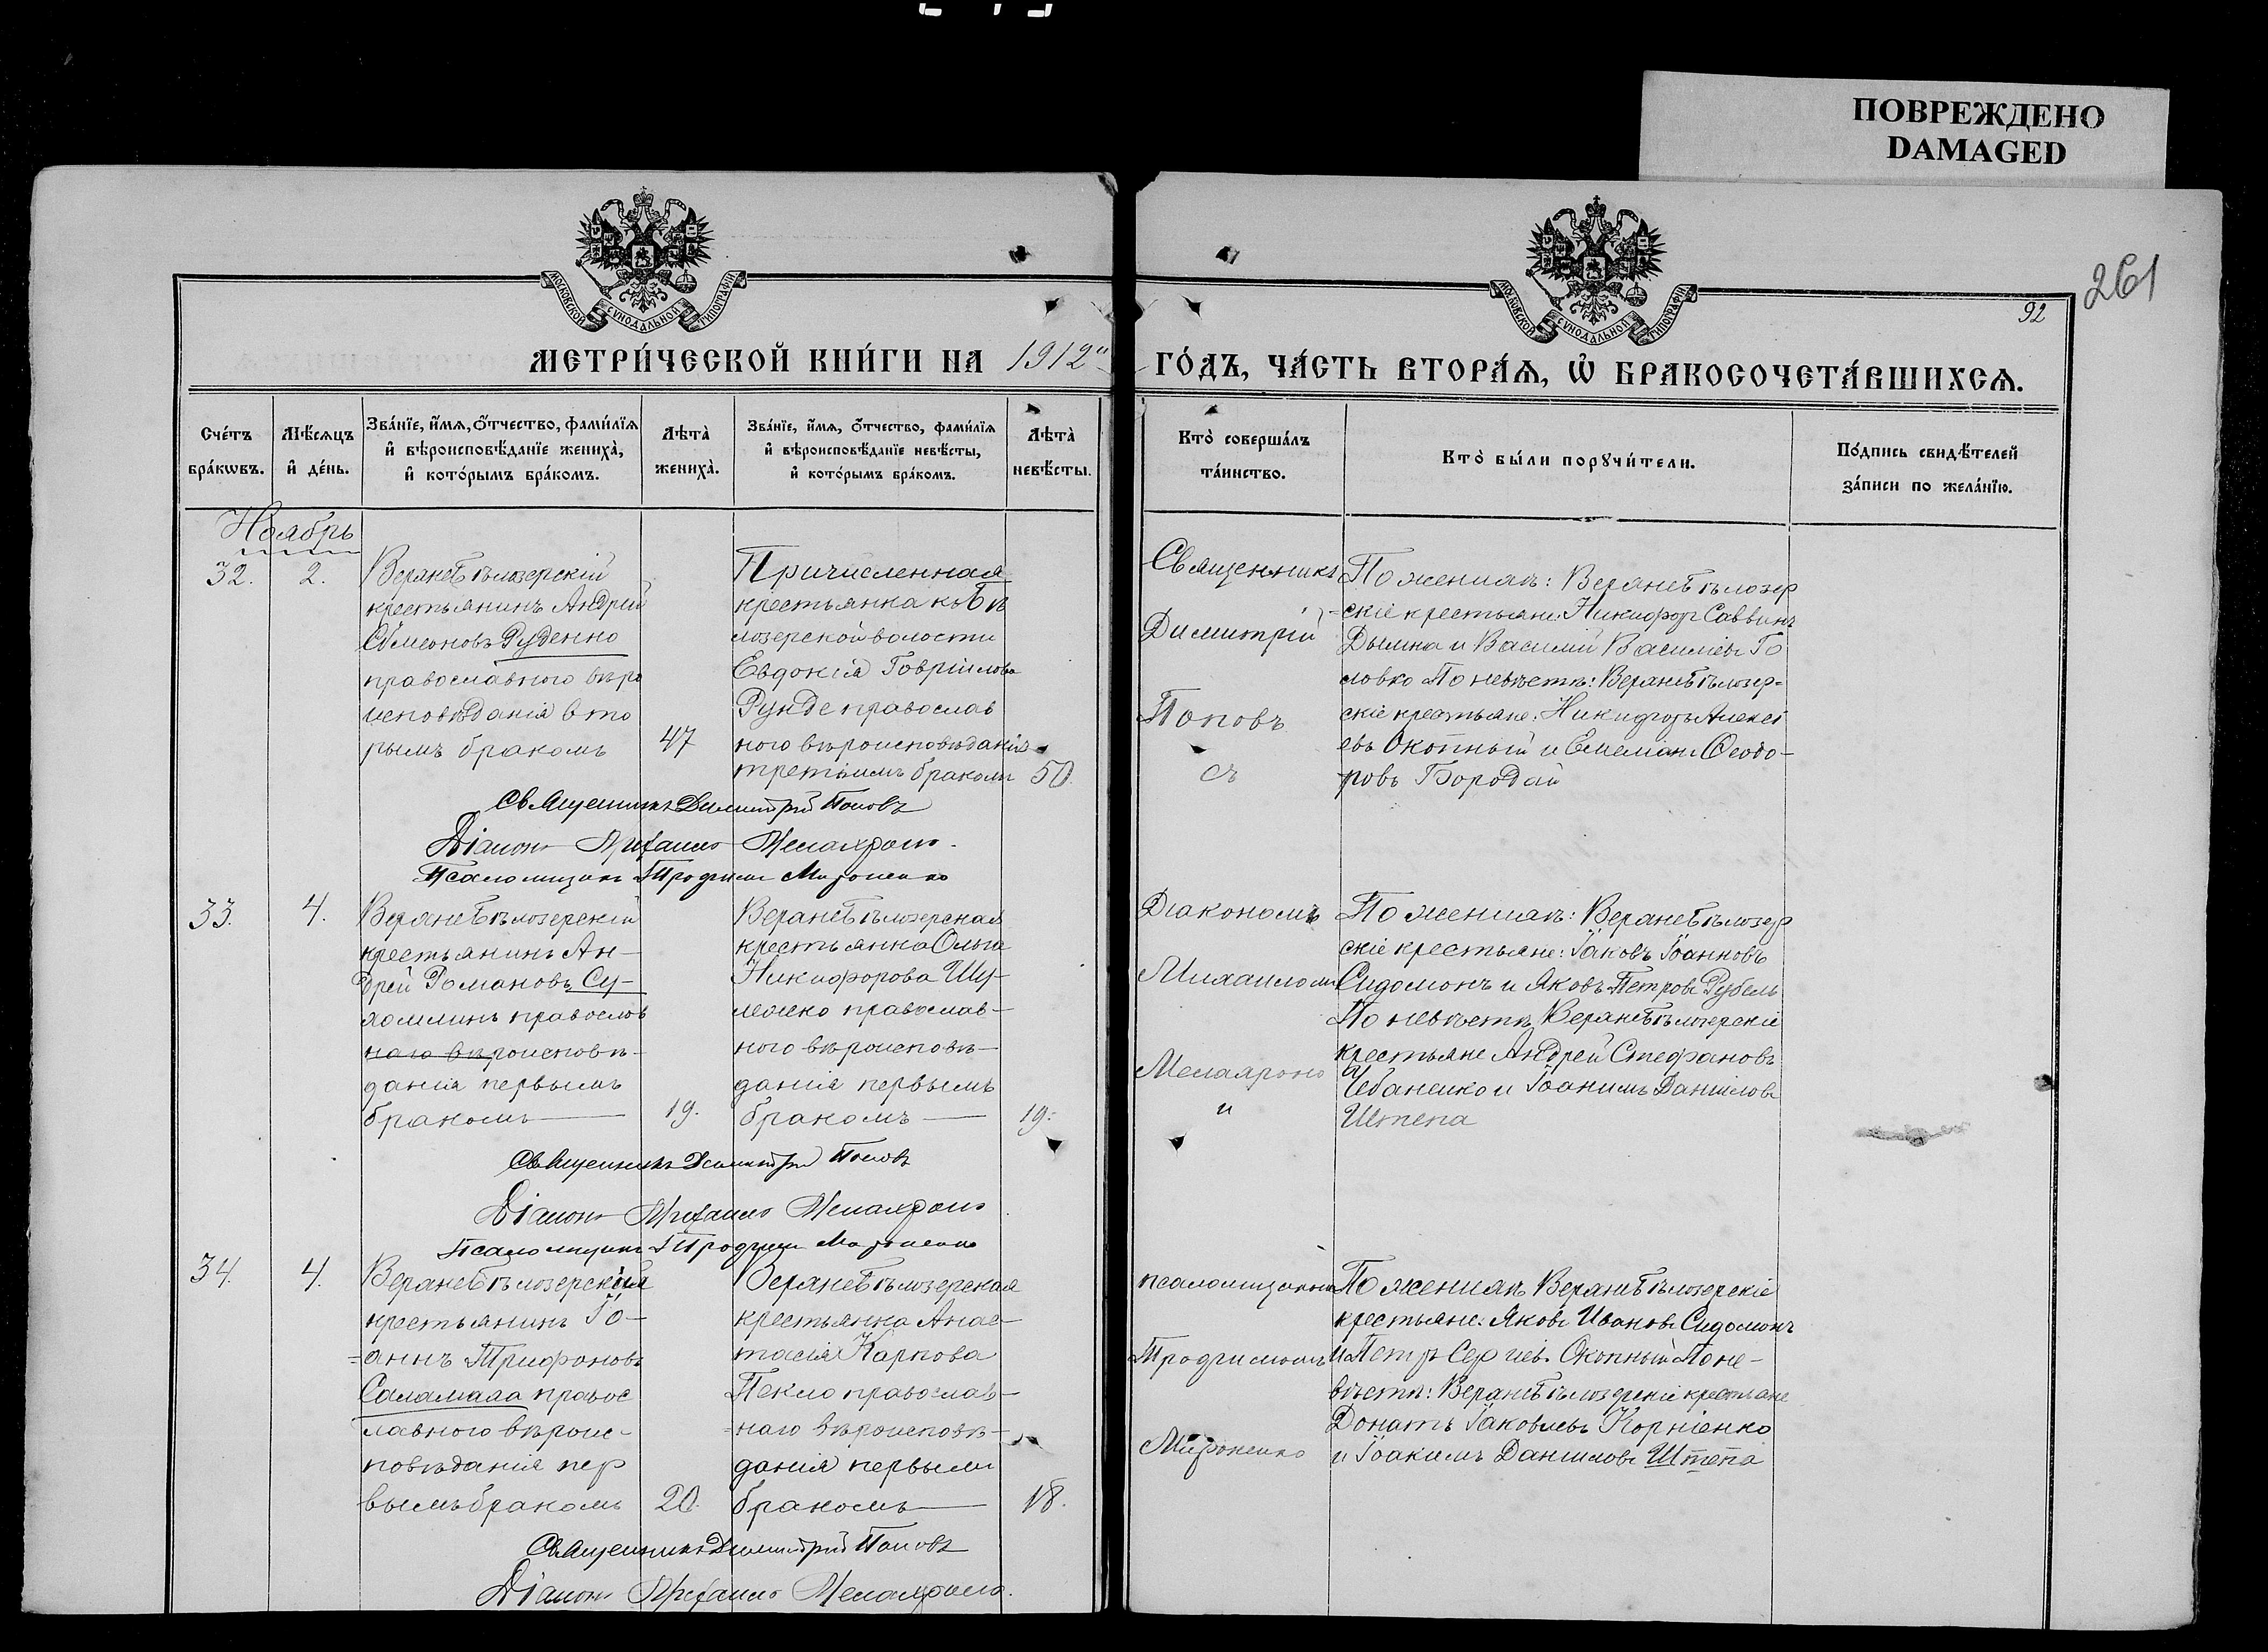 ПОВРЕЖДЕНО
DAMAGED
261
92
МОСКОВСКОЙ СѴНОДАЛЬНОЙ ТИПОГРАФІИ
МОСКОВСКОЙ СѴНОДАЛЬНОЙ ТИПОГРАФІИ
МЕТРИ́ЧЕСКОЙ КНИ́ГИ НА 1912й ГО́ДЪ, ЧА́СТЬ ВТОРА́Ѧ, Ѡ҆ БРАКОСОЧЕТА́ВШИХСѦ.
Сче́тъ
бра́кѡвъ.
Мѣ́сѧцъ
и҆ де́нь.
Зва́нїе, и҆́мѧ, ѻ҆́тчество, фами́лїѧ
и҆ вѣроисповѣ́данїе жениха̀,
и҆ кото́рымъ бра́комъ.
Лѣта̀
жениха̀.
Зва́нїе, и҆́мѧ, ѻ҆́тчество, фами́лїѧ
и҆ вѣроисповѣ́данїе невѣ́сты,
и҆ кото́рымъ бра́комъ.
Лѣта̀
невѣ́сты.
Кто̀ соверша́лъ
та́инство.
Кто̀ бы́ли порꙋчи́тели.
По́дпись свидѣ́телей
за́писи по жела́нїю.
Ноябрь
32.
2.
Верхнебѣлозерскій
крестьянинъ Андрей
Сѵмеоновъ Руденко
православного вѣро
исповѣданія вто
рымъ бракомъ
47
Причисленная
крестьянка ко Бѣ
лозерской волости
Евдокія Гавріилова
Рунде православ
ного вѣроисповѣданія
третьимъ бракомъ
50.
Священникъ
Димитрій
Поповъ
съ
По женихѣ: Верхнебѣлозер
скіе крестьяне: Никифоръ Саввинъ
Дымка и Василій Василіевъ Го
ловко По невѣстѣ: Верхнебѣлозер=
скіе крестьяне: Никифоръ Алексі
евъ Окопный и Емеліанъ Ѳеодо-
ровъ Бородай
Священникъ Димитрій Поповъ
Діаконъ Михаилъ
Псаломщикъ Трофимъ Мироненко
33.
4.
Верхнебѣлозерскій
крестьянинъ Ан-
дрей Романовъ Су-
хомлинъ православ
ного вѣроисповѣ-
данія первымъ
бракомъ
19.
Верхнебѣлозерская
крестьянка Ольга
Никифорова Шу-
лежко православ-
ного вѣроисповѣ-
данія первымъ
бракомъ
19.
Діакономъ
Михаиломъ
и
По женихѣ: Верхнебѣлозер
скіе крестьяне: Іаковъ Іоанновъ
Сидомонъ и Яковъ Петровъ Рубель
По невѣстѣ Верхнебѣлозерскіе
крестьяне Андрей Стефановъ
Чебаненко и Іоакимъ Даниловъ
Штепа
Священникъ Димитрій Поповъ
Діаконъ Михаилъ
Псаломщикъ Трофимъ Мироненко
34.
4.
Верхнебѣлозерскій
крестьянинъ Іо-
=аннъ Трифоновъ
Саламаха правос
лавного вѣроис-
повѣданія пер
вымъ бракомъ
20.
Верхнебѣлозерская
крестьянка Анас-
тасія Карпова
Пекло православ-
=наго вѣроисповѣ-
данія первымъ
бракомъ
18.
псаломщикомъ
Трофимомъ
Мироненко
По женихѣ Верхнебѣлозерскіе
крестьяне: Яковъ Ивановъ Сидомонъ
и Петръ Сергіевъ Окопный По не-
вѣстѣ: Верхнебѣлозерскіе крестьяне
Донатъ Іаковлевъ Корніенко
и Іоакимъ Даниловъ Штепа
Священникъ Димитрій Поповъ
Діаконъ Михаилъ